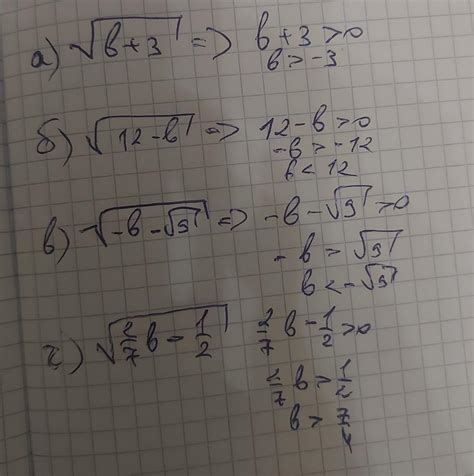 а) √(b+3) => b+3>0
b>-3
б) √(12-b) => 12-b>0
-b>-12
b<12
в) √(-b-√3) => -b-√3>0
-b>√3
b<-√3
г) √(2/7 b - 1/2) 2/7 b - 1/2 >0
2/7 b > 1/2
b > 7/4